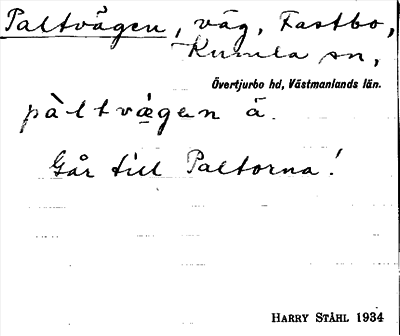 Paltvägen, väg, Fastbo,
Kumla sn,
Övertjurbo hd, Västmanlands län.
pàltvä̀gen ä.
Går till Paltorna!
HARRY STÅHL 1934